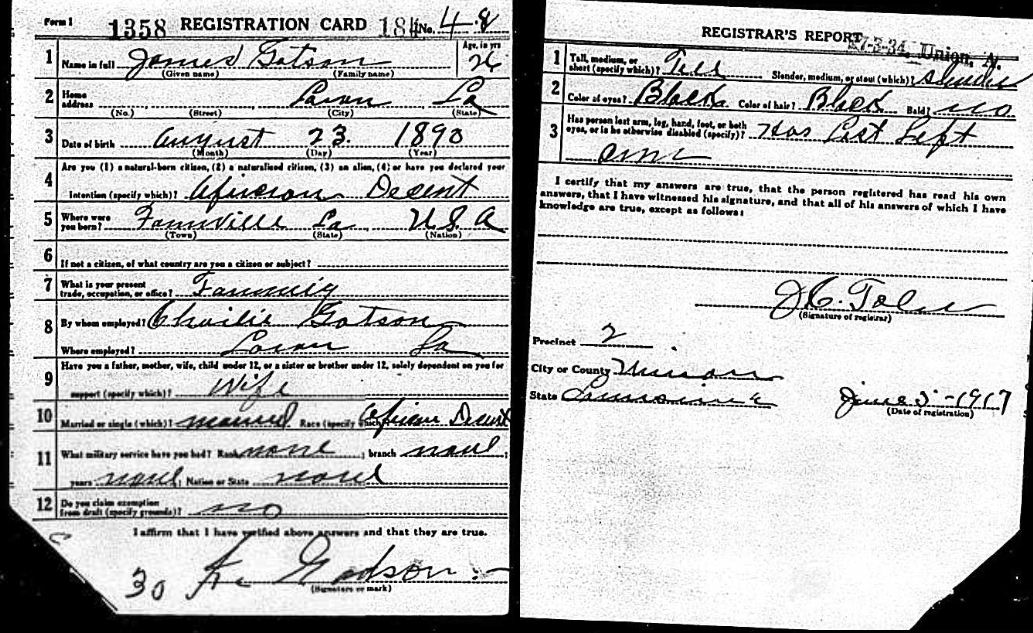 Form 1 1358 REGISTRATION CARD 184 No. 48
1 Name in full James Gotson Age, in yrs 26
(Given name) (Family name)
2 Home address Loran La
(No.) (Street) (City) (State)
3 Date of birth August 23 1890
(Month) (Day) (Year)
4 Are you (1) a natural-born citizen, (2) a naturalized citizen, (3) an alien, (4) or have you declared your
intention (specify which)? African Decent
5 Where were you born? Farmville La U.S.A
(Town) (State) (Nation)
6 If not a citizen, of what country are you a citizen or subject?
7 What is your present trade, occupation, or office?
8 By whom employed? Charlie Gotson
Where employed? Loran La
9 Have you a father, mother, wife, child under 12, or a sister or brother under 12, solely dependent on you for
support (specify which)? Wife
10 Married or single (which)? married Race (specify which)? African Decent
11 What military service have you had? Rank none ; branch none ;
years none ; Nation or State none
12 Do you claim exemption from draft (specify grounds)? no
I affirm that I have verified above answers and that they are true.
30 Godson
(Signature or mark)
REGISTRAR'S REPORT 17-3-34 Union, A.
1 Tall, medium, or short (specify which)? Tall Slender, medium, or stout (which)? slender
2 Color of eyes? Black Color of hair? Black Bald? no
3 Has person lost arm, leg, hand, foot, or both eyes, or is he otherwise disabled (specify)? Has Lost Left
arm
I certify that my answers are true, that the person registered has read his own
answers, that I have witnessed his signature, and that all of his answers of which I have
knowledge are true, except as follows:
(Signature of registrar)
Precinct 2
City or County Union
State Louisiana June 5-1917
(Date of registration)